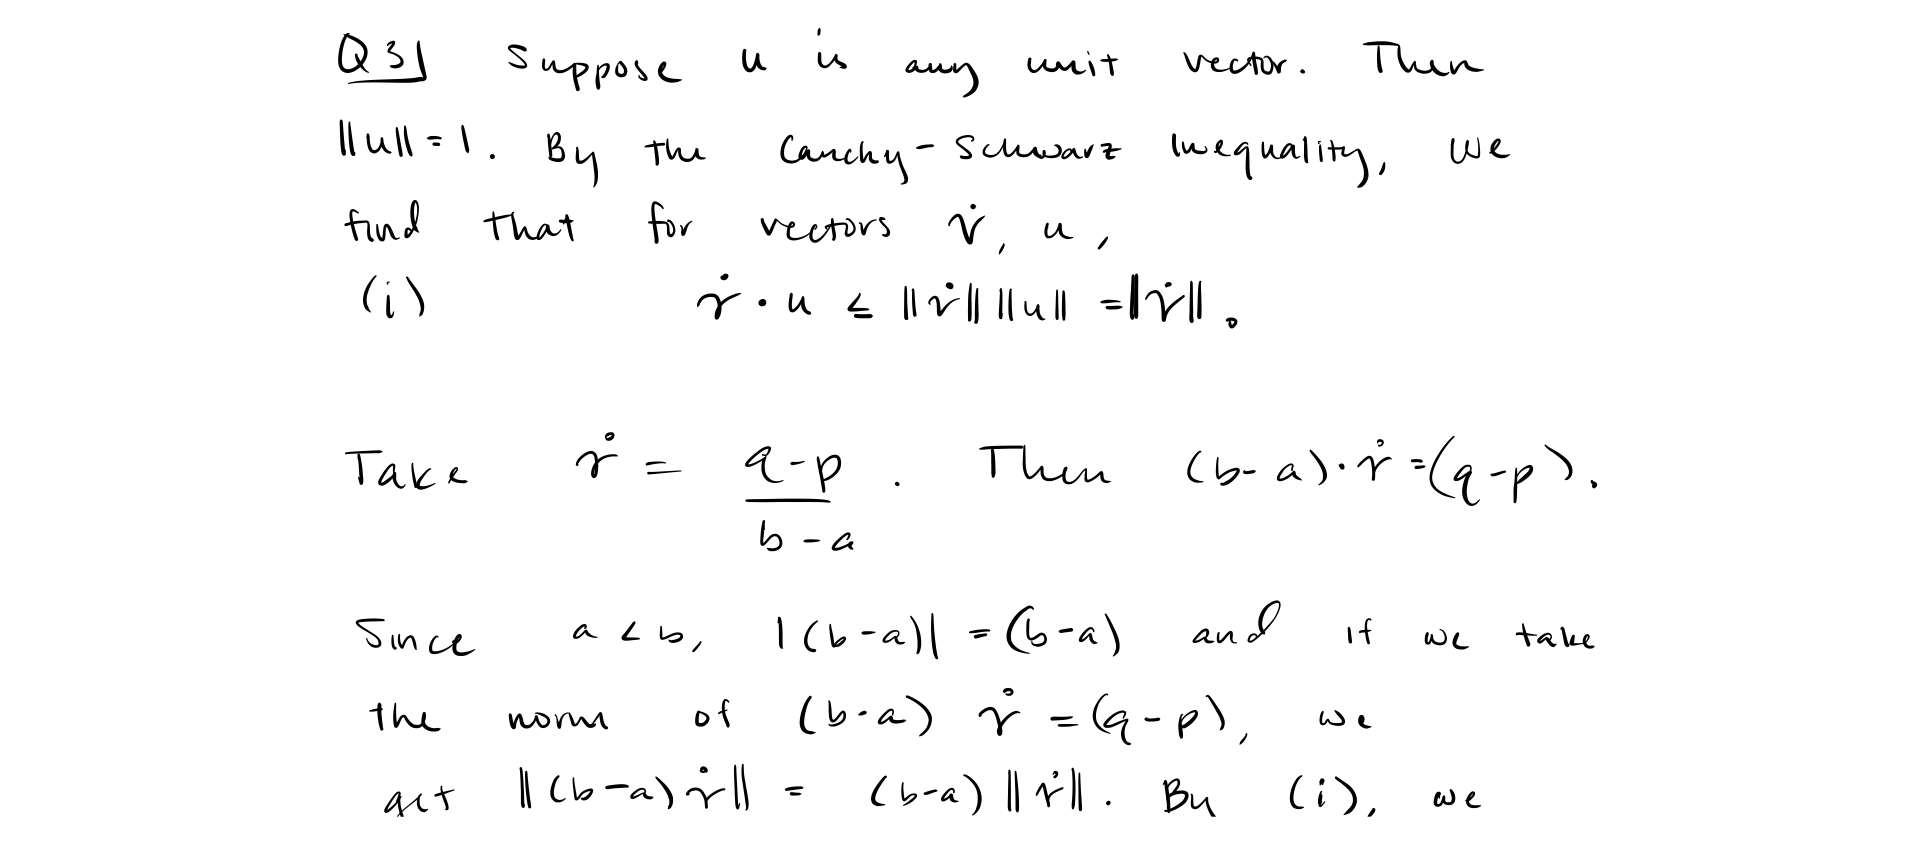 Q3] Suppose u is any unit vector. Then
||u|| = 1. By the Cauchy-Schwarz Inequality, we
find that for vectors γ̇, u,
(i) γ̇ · u ≤ ||γ̇|| ||u|| = ||γ̇||.
Take γ̇ = (q-p)/(b-a). Then (b-a)·γ̇ = (q-p).
Since a < b, |(b-a)| = (b-a) and if we take
the norm of (b-a) γ̇ = (q-p), we
get ||(b-a)γ̇|| = (b-a) ||γ̇||. By (i), we